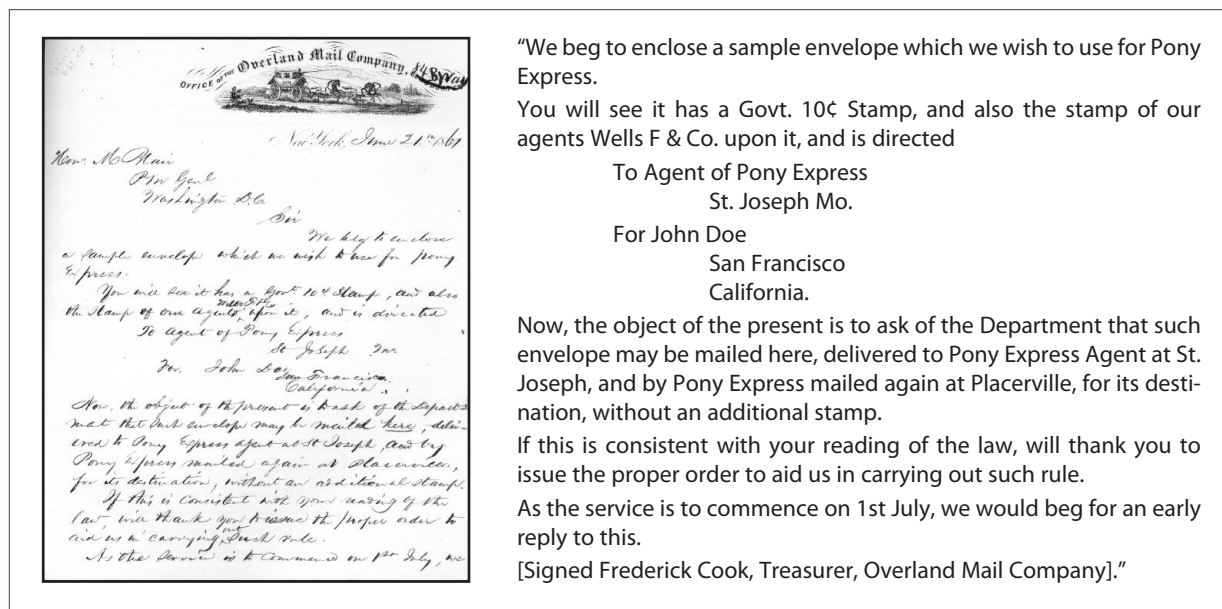 OFFICE of the Overland Mail Company, 84 B.Way
New York, June 21st 1861
Hon. M Blair
P M Genl
Washington D.C.
Sir
We beg to enclose
a sample envelope which we wish to use for pony
Express.
You will see it has a Govt 10¢ Stamp, and also
the Stamp of our Agents Wells F & Co upon it, and is directed
To Agent of Pony Express
St Joseph Mo.
For John Doe
San Francisco
California.
Now, the object of the present is to ask of the Depart-
ment that such envelope may be mailed here, deliv-
ered to Pony Express Agent at St Joseph, and by
Pony Express mailed again at Placerville,
for its destination, without an additional stamp.
If this is consistent with your reading of the
law, will thank you to issue the proper order to
aid us in carrying out such rule.
As the Service is to commence on 1st July, we
“We beg to enclose a sample envelope which we wish to use for Pony
Express.
You will see it has a Govt. 10¢ Stamp, and also the stamp of our
agents Wells F & Co. upon it, and is directed
To Agent of Pony Express
St. Joseph Mo.
For John Doe
San Francisco
California.
Now, the object of the present is to ask of the Department that such
envelope may be mailed here, delivered to Pony Express Agent at St.
Joseph, and by Pony Express mailed again at Placerville, for its desti-
nation, without an additional stamp.
If this is consistent with your reading of the law, will thank you to
issue the proper order to aid us in carrying out such rule.
As the service is to commence on 1st July, we would beg for an early
reply to this.
[Signed Frederick Cook, Treasurer, Overland Mail Company].”